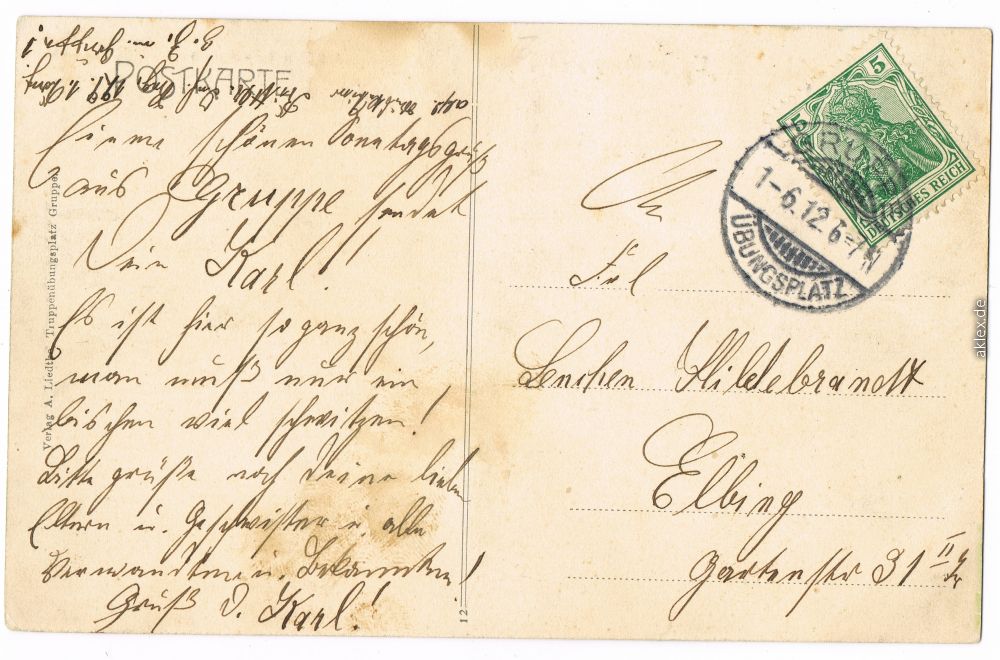 POSTKARTE
Einen schönen Sonntagsgruß
aus Gruppe sendet
Dein Karl!
Es ist hier so ganz schön,
man muß nur ein
bischen viel schwitzen!
Bitte grüße noch Deine lieben
Eltern u. Geschwister u. alle
Verwandten u. Bekannten!
Gruß D. Karl!
Verlag A. Liedtke, Truppenübungsplatz Gruppe.
12
An
Frl
Lenchen Hildebrandt
Elbing
Gartenstr 31 II
5
5
DEUTSCHES REICH
1-6.12.6-7N
ÜBUNGSPLATZ
aklex.de